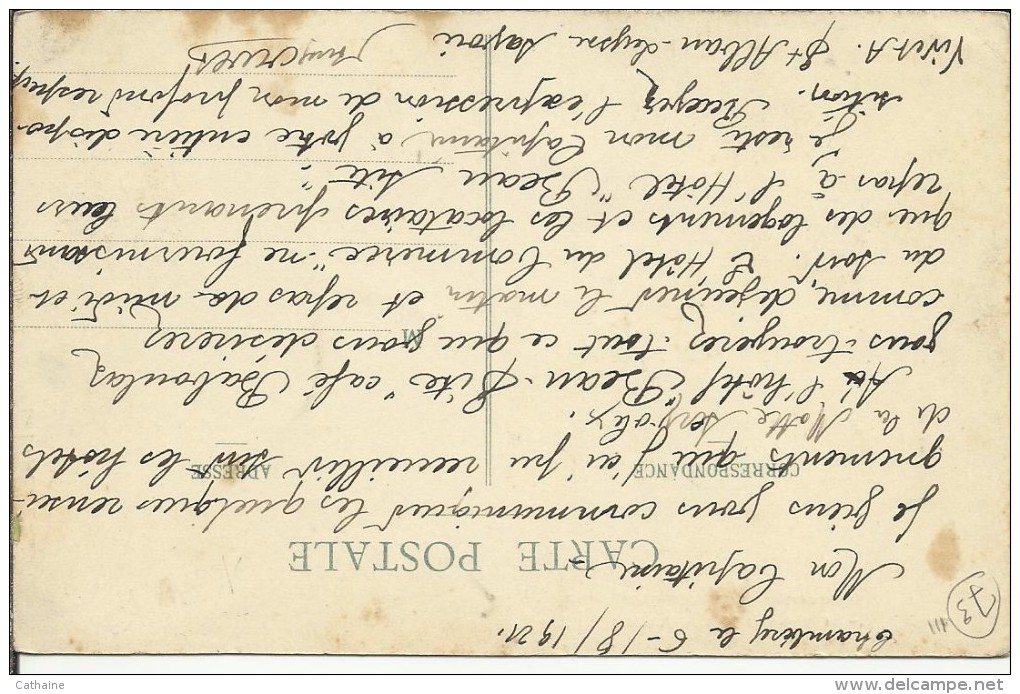 Chambéry le 6-/8/1921.
Mon Capitaine
CARTE POSTALE
Je viens vous communiquer les quelques rensei-
gnements que j'ai pu recueillir sur les hôtels
CORRESPONDANCE
ADRESSE
de la Motte Servolex.
A l'hôtel "Beau-Site" café
vous trouverez tout ce que vous désirerez
M
comme, déjeuner le matin et repas da midi et
du soir. L'Hôtel du Commerce "ne fournissant
que des logements et les locataires prenants leurs
repas à l'Hôtel "Beau Site".
Je reste mon Capitaine, à votre entière dispo-
sition. Recevez l'expression de mon profond respect,
Vivet A. St Alban-Leysse Savoie
73
Cathaine
www.delcampe.net